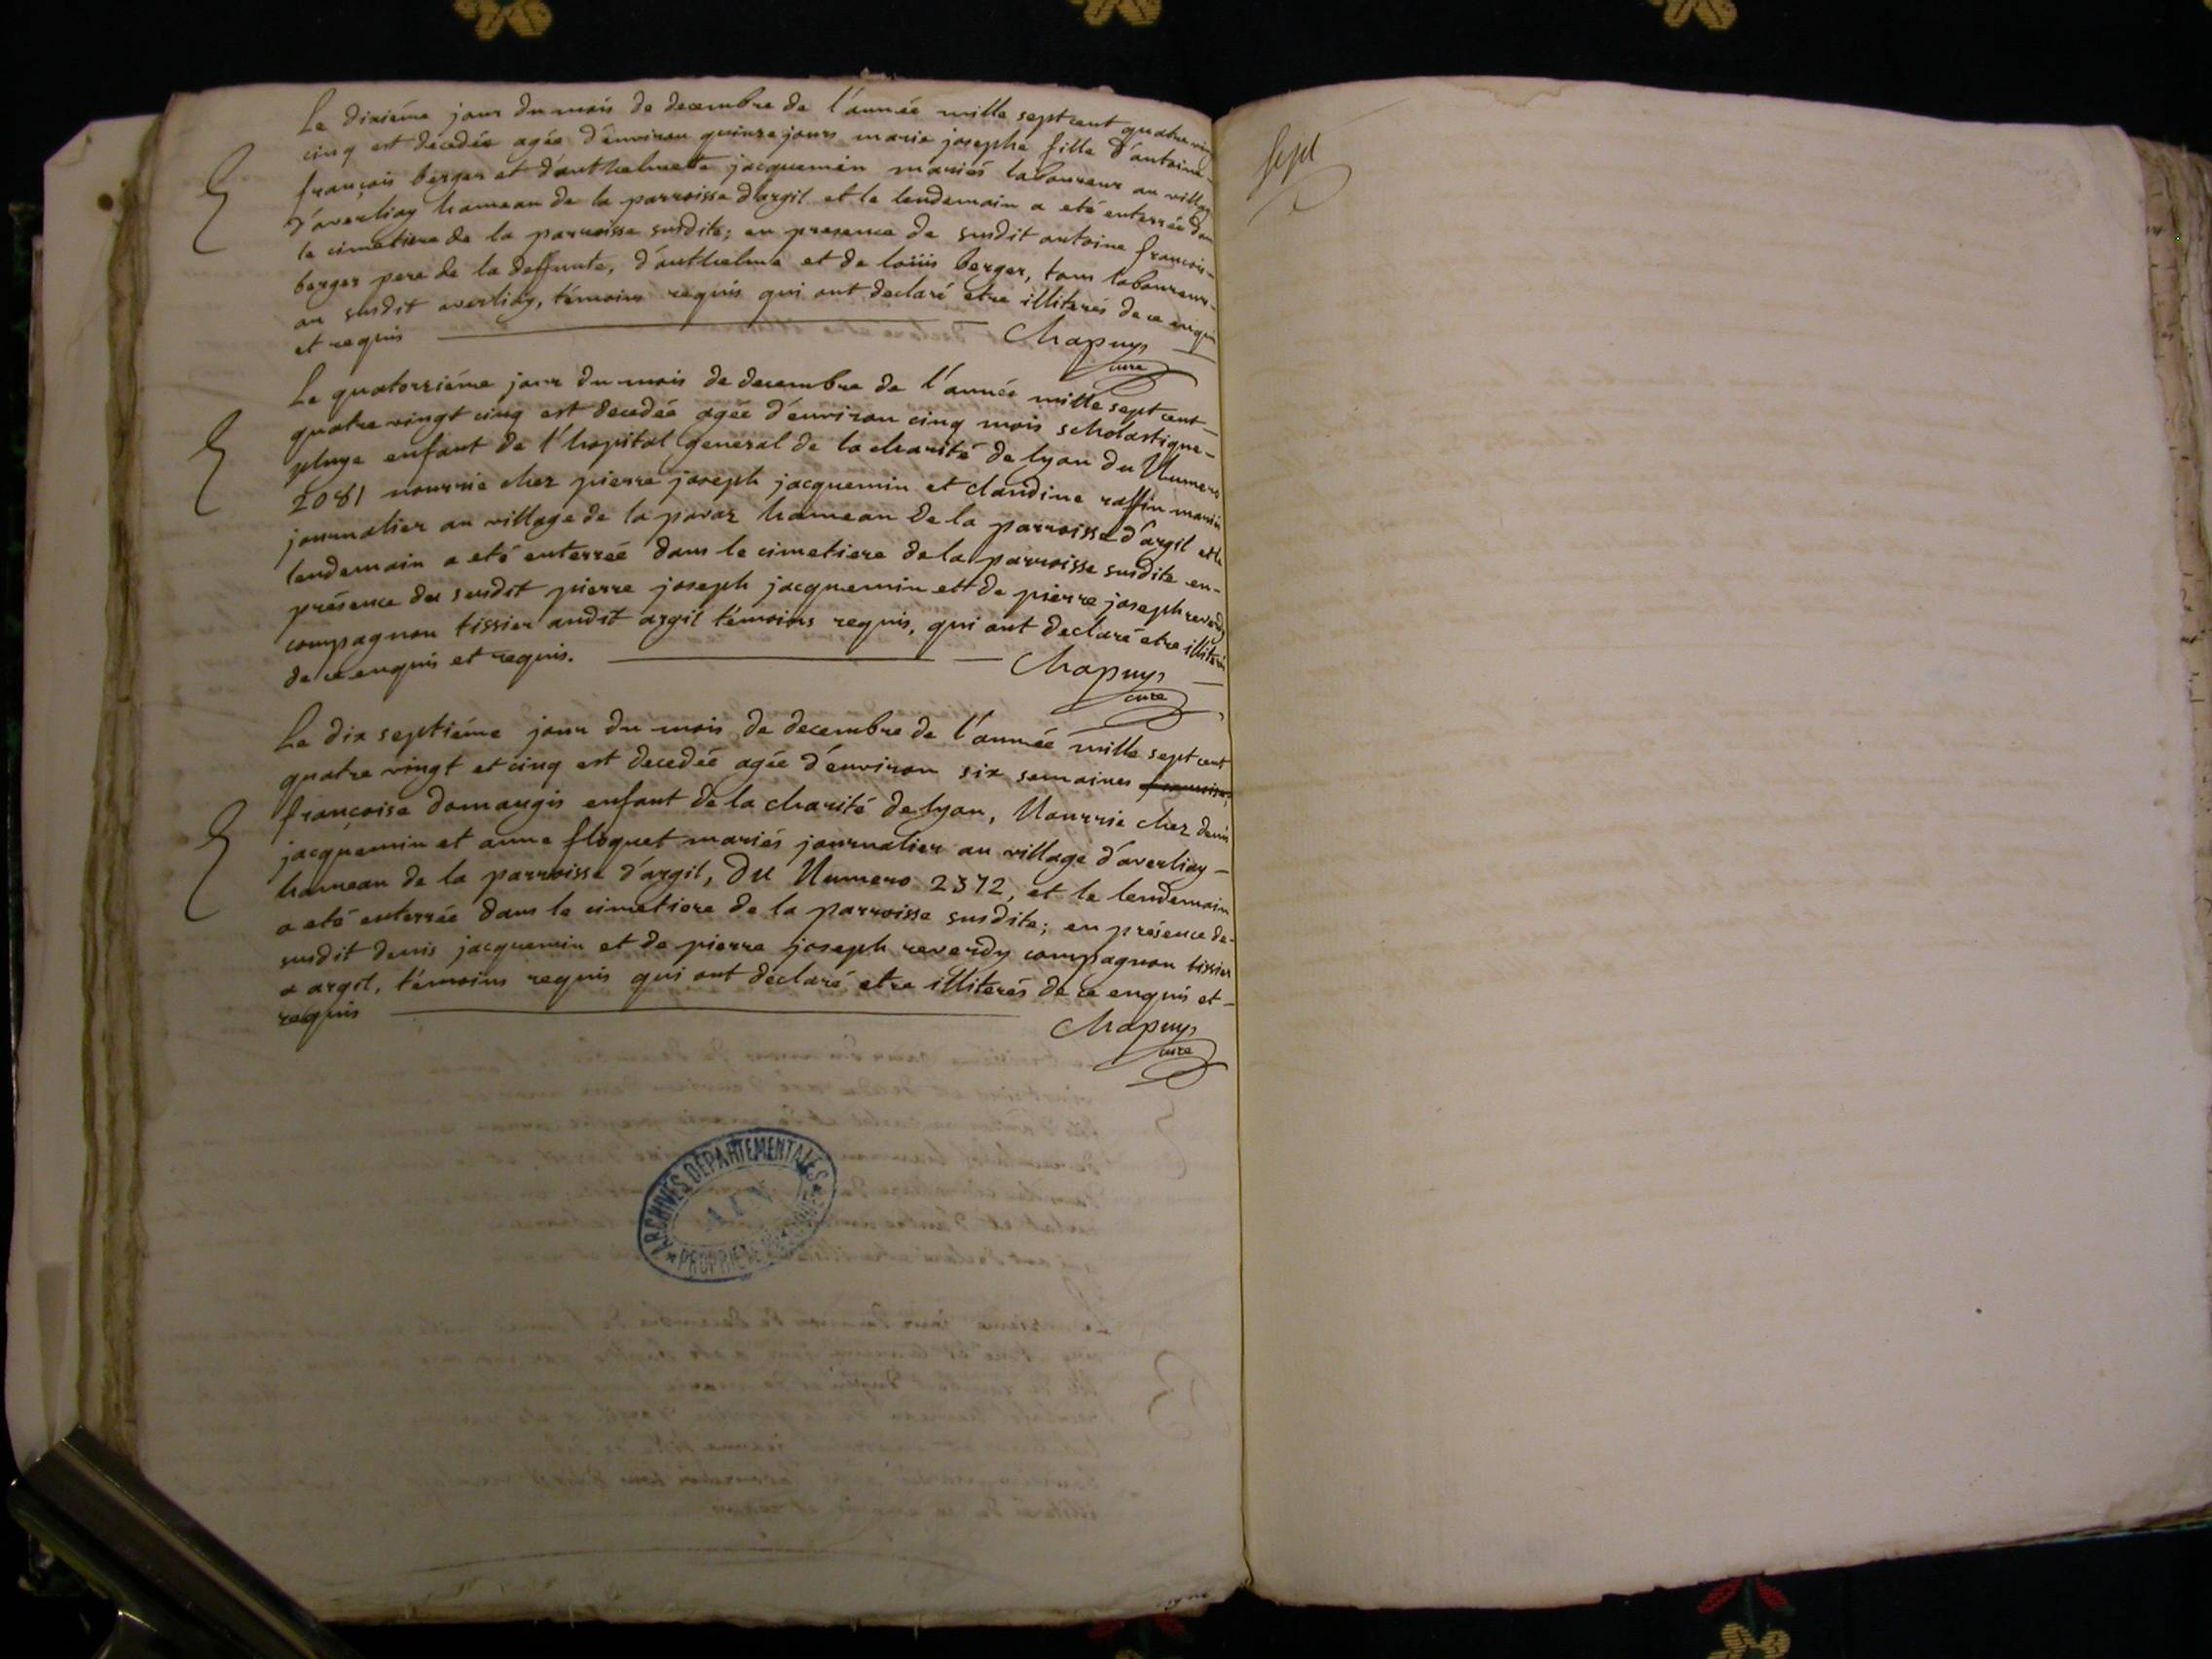 Le dixiéme jour du mois de decembre de l'année mille sept cent quatre vingt
cinq est decedée agée d'environ quinze jours marie josephe fille d'antoine
françois berger et d'anthelmette jacquemin mariés laboureur au village
d'averliay hameau de la parroisse d'argil et le lendemain a eté enterrée dans
le cimetiere de la parroisse susdite; en presence de susdit antoine françois
berger pere de la deffunte, d'anthelme et de loüis berger, tous laboureurs
au susdit averliay, témoins requis qui ont declaré etre illiterés de ce enquis
et requis
Chapuys
curé
Le quatorziéme jour du mois de decembre de l'année mille sept cent
quatre vingt cinq est decedée agée d'environ cinq mois scholastique
pluye enfant de l'hopital general de la charité de lyon du Numero
2081 nourrie chez pierre joseph jacquemin et claudine raffin mariés
journalier au village de la pavaz hameau de la parroisse d'argil et le
lendemain a eté enterreé dans le cimetiere de la parroisse susdite en
présence du susdit pierre joseph jacquemin et de pierre joseph reverdy
compagnon tissier audit argil témoins requis, qui ont declaré etre illiterés
de ce enquis et requis.
Chapuys
curé
Le dix septiéme jour du mois de decembre de l'année mille sept cent
quatre vingt et cinq est decedée agée d'environ six semaines francoise
françoise domangis enfant de la charité de lyon, Nourrie chez denis
jacquemin et anne floquet mariés journalier au village d'averliay
hameau de la parroisse d'argil, du Numero 2372, et le lendemain
a eté enterrée dans le cimetiere de la parroisse susdite; en présence de
susdit denis jacquemin et de pierre joseph reverdy compagnon tissier
a argil, témoins requis qui ont declaré etre illiterés de ce enquis et
requis
Chapuys
curé
ARCHIVES DÉPARTEMENTALES
AIN
PROPRIÉTÉ PUBLIQUE
sept